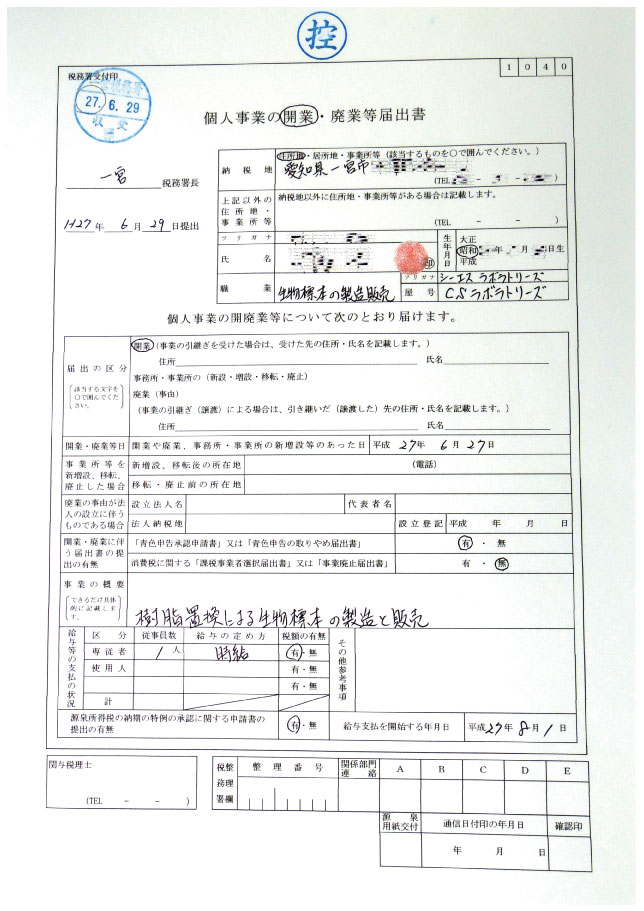 控
1040
税務署受付印
27.6.29
収受
個人事業の開業・廃業等届出書
一宮 税務署長
H27年 6月 29日提出
納税地
住所地・居所地・事業所等（該当するものを○で囲んでください。）
愛知県一宮市
(TEL
上記以外の住所地・事業所等
納税地以外に住所地・事業所等がある場合は記載します。
(TEL － － )
フリガナ
氏名
生年月日
大正
昭和 年 月 日生
平成
職業
生物標本の製造販売
フリガナ シーエスラボラトリーズ
屋号 C.Sラボラトリーズ
個人事業の開廃業等について次のとおり届けます。
届出の区分
（該当する文字を○で囲んでください。）
開業（事業の引継ぎを受けた場合は、受けた先の住所・氏名を記載します。）
住所 氏名
事務所・事業所の（新設・増設・移転・廃止）
廃業（事由）
（事業の引継ぎ（譲渡）による場合は、引き継いだ（譲渡した）先の住所・氏名を記載します。）
住所 氏名
開業・廃業等日 開業や廃業、事務所・事業所の新増設等のあった日 平成 27年 6月 27日
事業所等を新増設、移転、廃止した場合
新増設、移転後の所在地 （電話）
移転・廃止前の所在地
廃業の事由が法人の設立に伴うものである場合
設立法人名 代表者名
法人納税地 設立登記 平成 年 月 日
開業・廃業に伴う届出書の提出の有無
「青色申告承認申請書」又は「青色申告の取りやめ届出書」 有・無
消費税に関する「課税事業者選択届出書」又は「事業廃止届出書」 有・無
事業の概要
（できるだけ具体的に記載します。）
樹脂置換による生物標本の製造と販売
給与等の支払の状況
区分 従事員数 給与の定め方 税額の有無
専従者 1人 時給 有・無
使用人 有・無
有・無
計
その他参考事項
源泉所得税の納期の特例の承認に関する申請書の提出の有無 有・無
給与支払を開始する年月日 平成27年8月1日
関与税理士
(TEL － － )
税務署整理欄
整理番号 関係部門連絡 A B C D E
源泉用紙交付 通信日付印の年月日 確認印
年 月 日